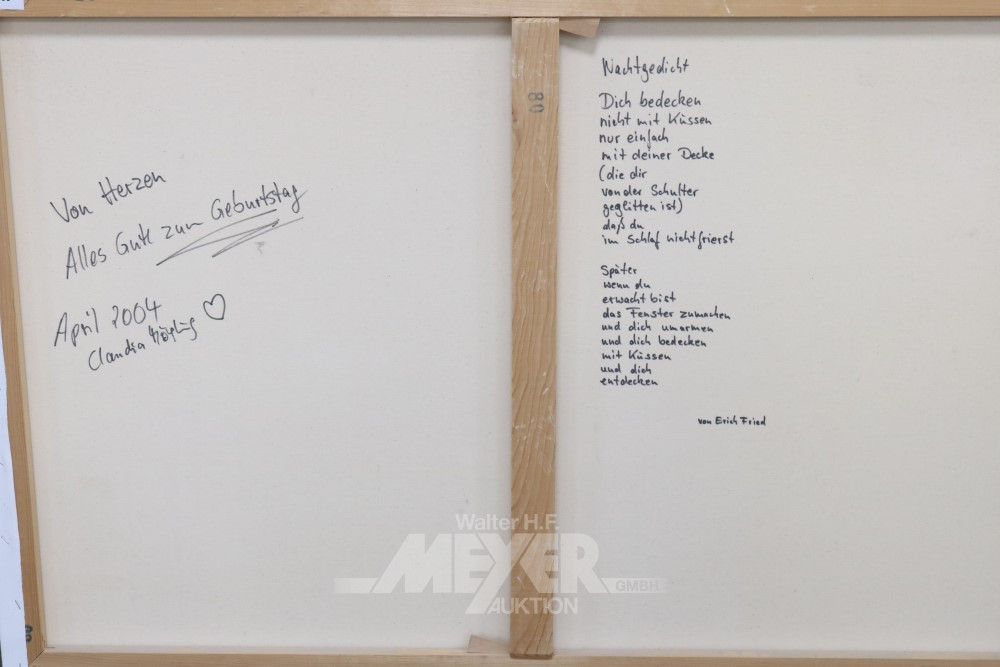 Von Herzen
Alles Gute zum Geburtstag
April 2004
Claudia
Nachtgedicht
Dich bedecken
nicht mit Küssen
nur einfach
mit deiner Decke
(die dir
von der Schulter
geglitten ist)
daß du
im Schlaf nicht frierst
Später
wenn du
erwacht bist
das Fenster zumachen
und dich umarmen
und dich bedecken
mit Küssen
und dich
entdecken
von Erich Fried
80
Walter H.F.
MEYER
GMBH
AUKTION